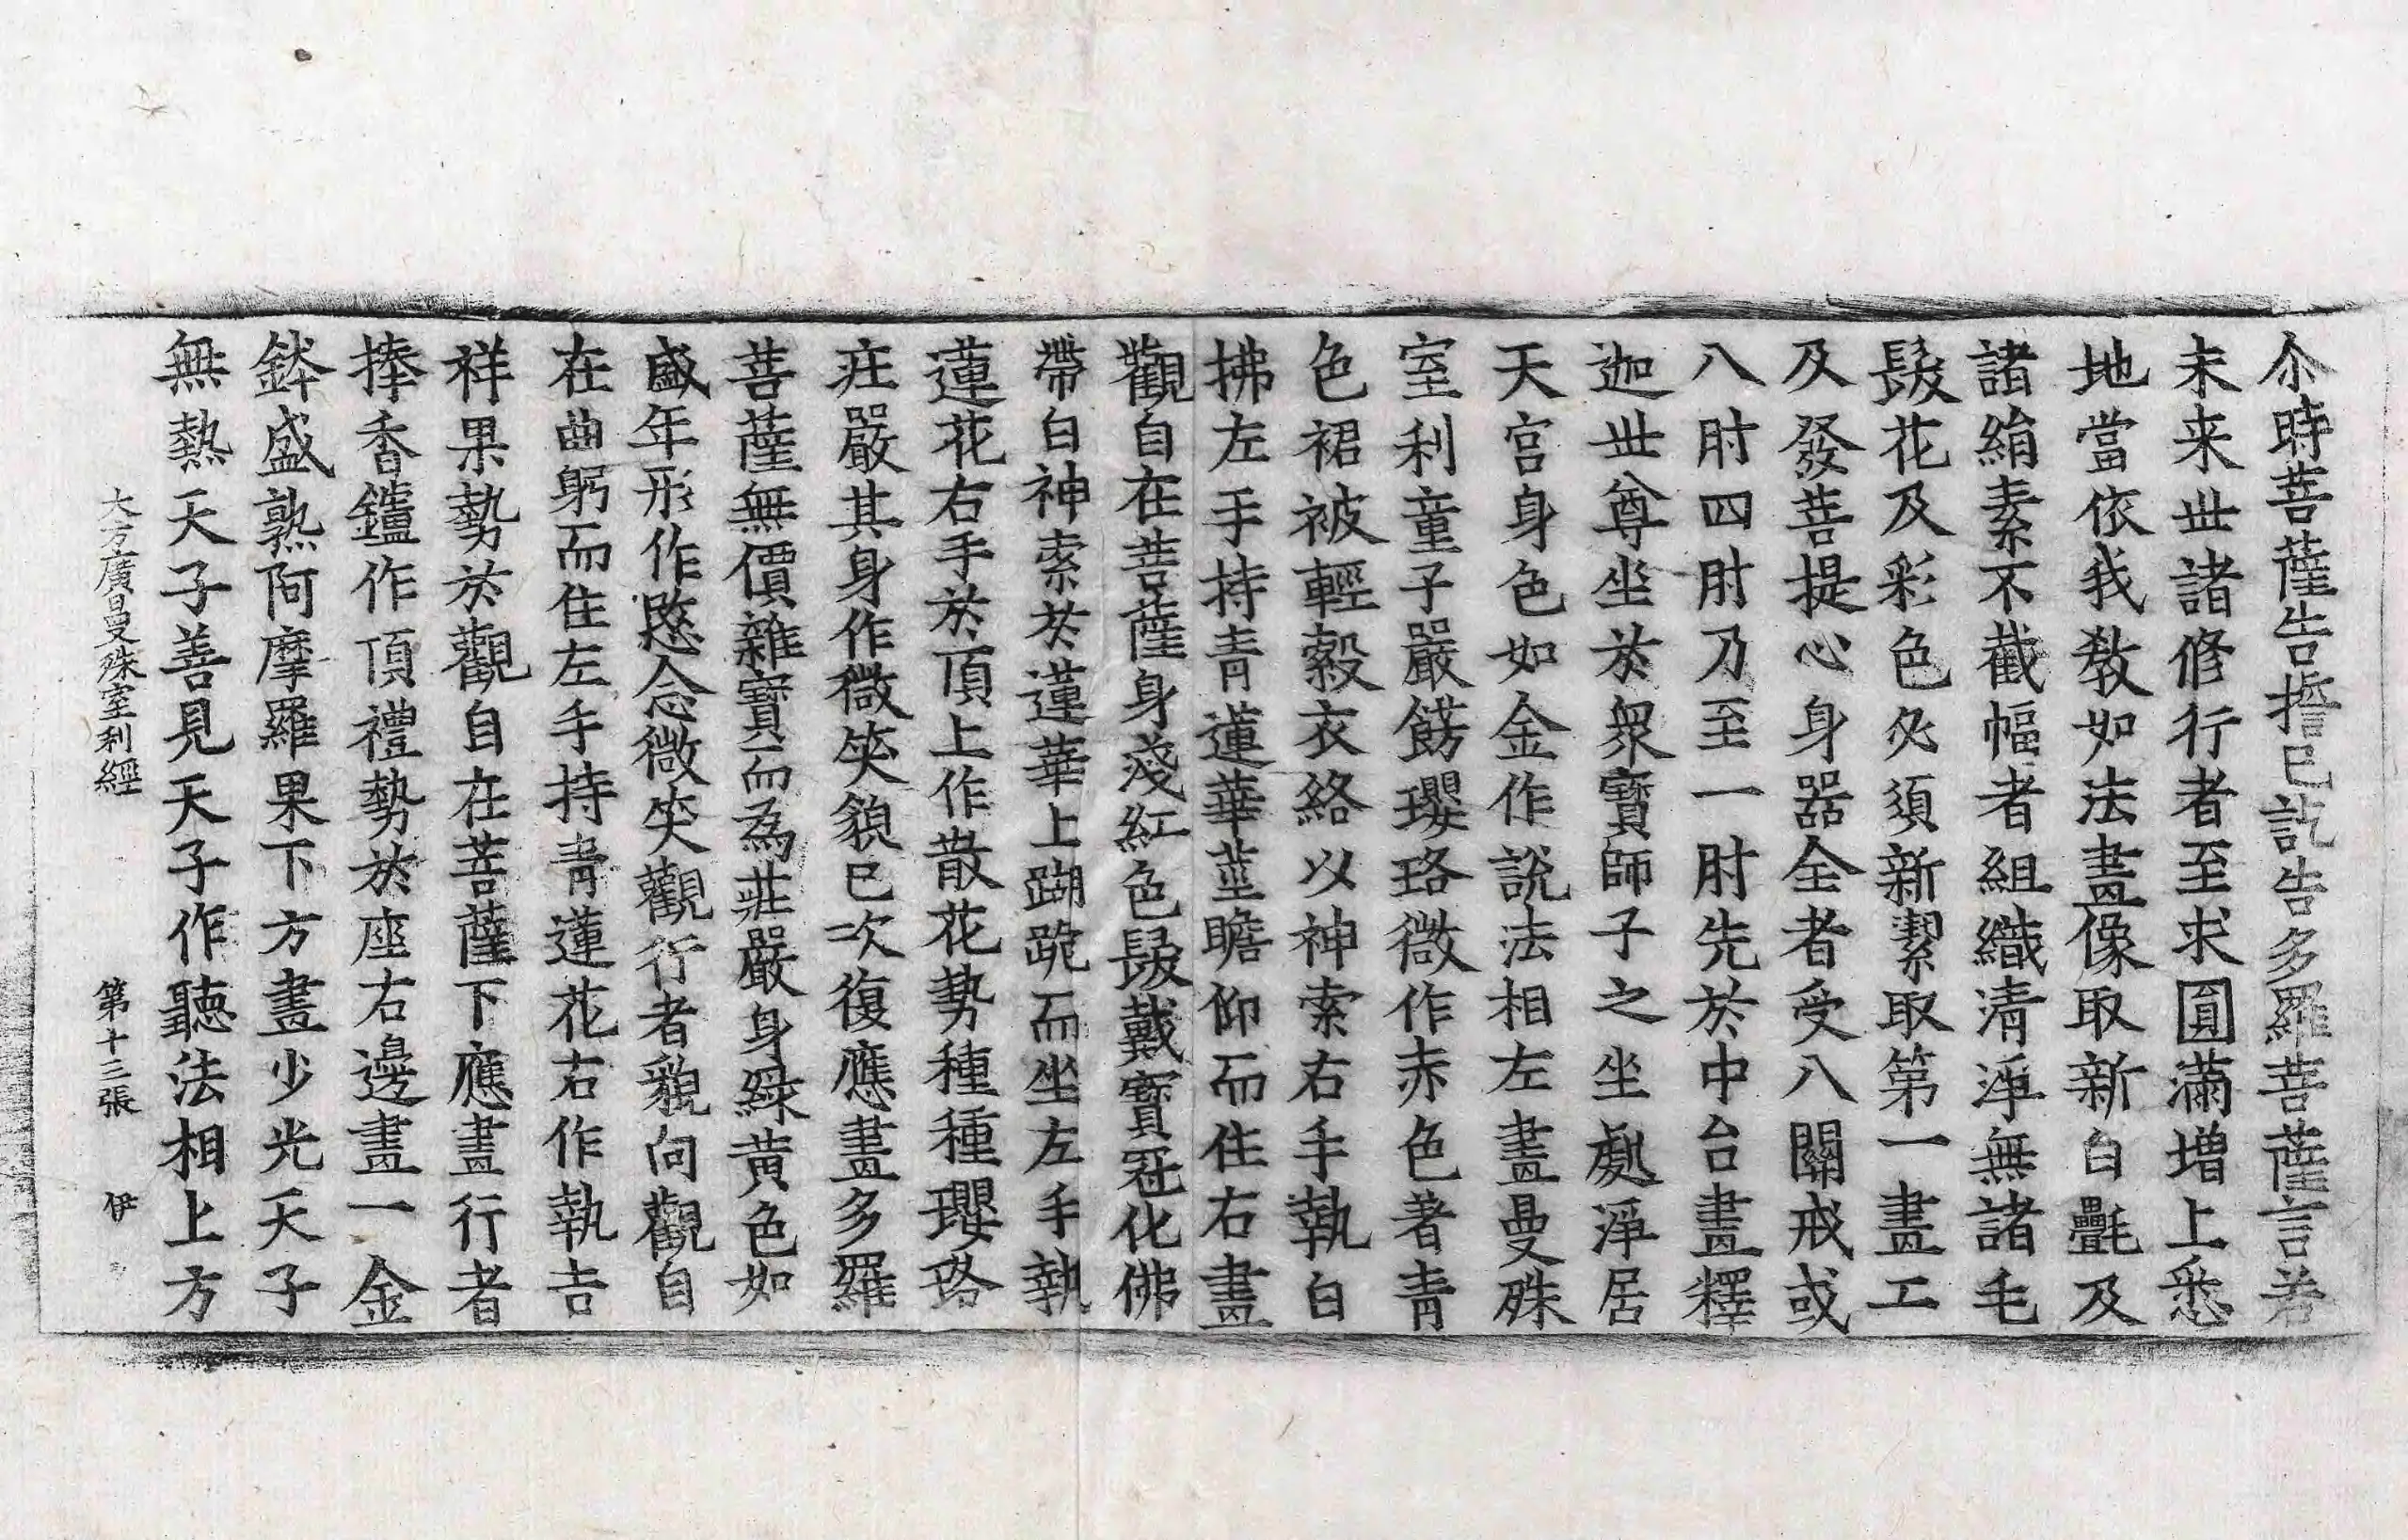 尒時菩薩告誓已訖告多羅菩薩言若
未来丗諸修行者至求圓滿增上悉
地當依我敎如法畫像取新白㲲及
諸絹素不截幅者組織清淨無諸毛
髮花及彩色必須新潔取第一畫工
及發菩提心身器全者受八關戒或
八肘四肘乃至一肘先於中台畫釋
迦丗尊坐於衆寶師子之坐處淨居
天宮身色如金作說法相左畫曼殊
室利童子嚴餝瓔珞微作赤色著青
色裙被輕縠衣絡以神索右手執白
拂左手持青蓮華莖瞻仰而住右畫
觀自在菩薩身淺紅色髮戴寶冠化佛
帶白神索於蓮華上蹋跪而坐左手執
蓮花右手於頂上作散花勢種種瓔珞
莊嚴其身作微笑貌已次復應畫多羅
菩薩無價雜寶而為莊嚴身綠黃色如
盛年形作愍念微笑觀行者貌向觀自
在曲躬而住左手持青蓮花右作執吉
祥果勢於觀自在菩薩下應畫行者
捧香鑪作頂禮勢於座右邊畫一金
鉢盛熟阿摩羅果下方畫少光天子
無熱天子善見天子作聽法相上方
大方廣曼殊室利經 第十三張 伊